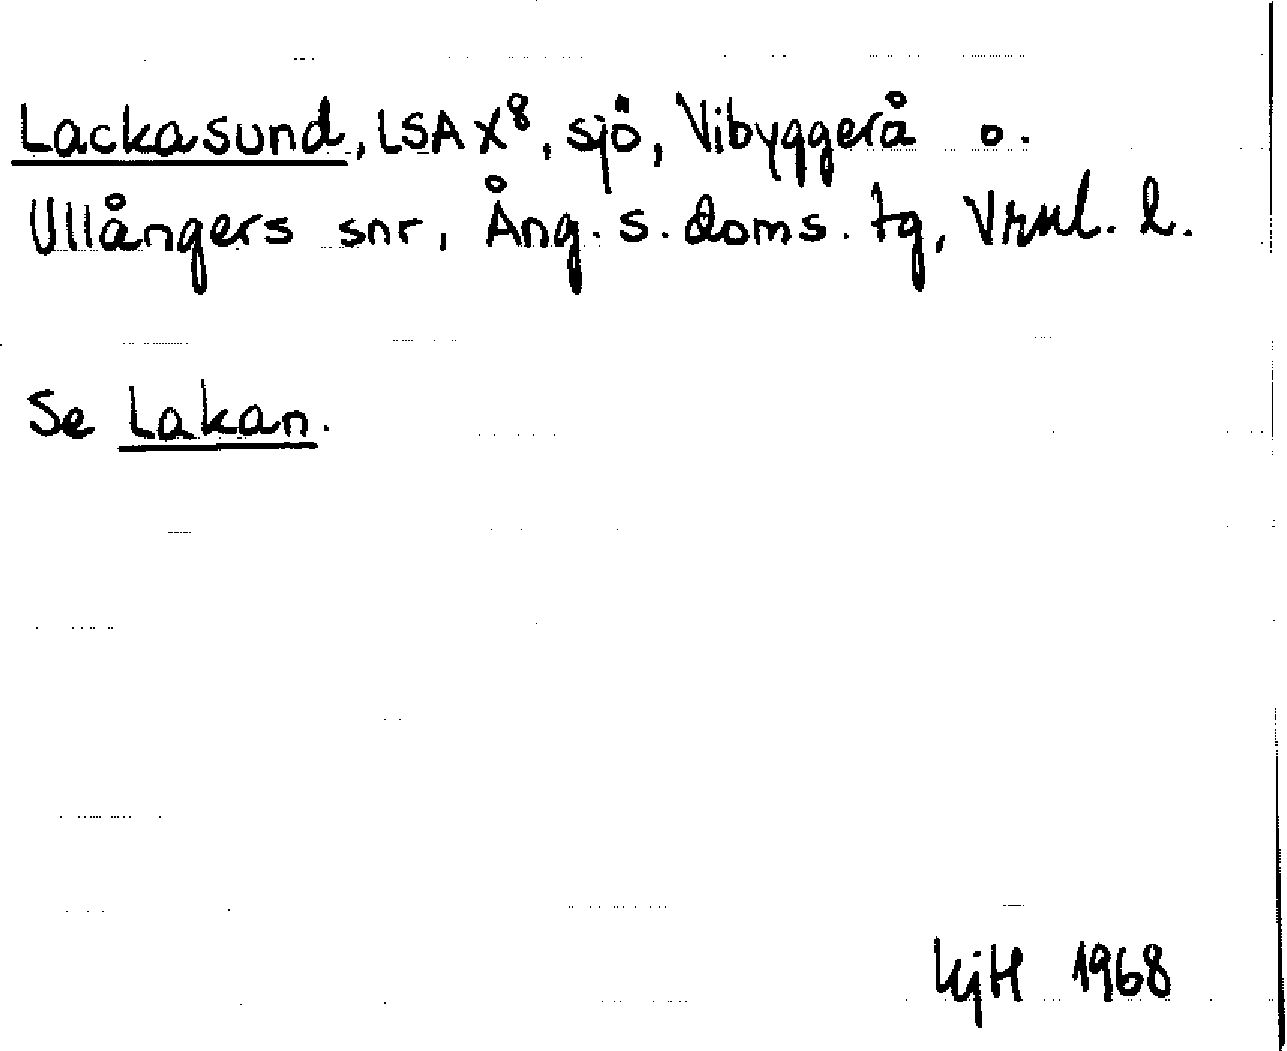 Lackasund, LSA X⁸, sjö, Vibyggerå o.
Ullångers snr, Ång. s. doms. tg, Vrnl. l.
Se Lakan.
KjH 1968